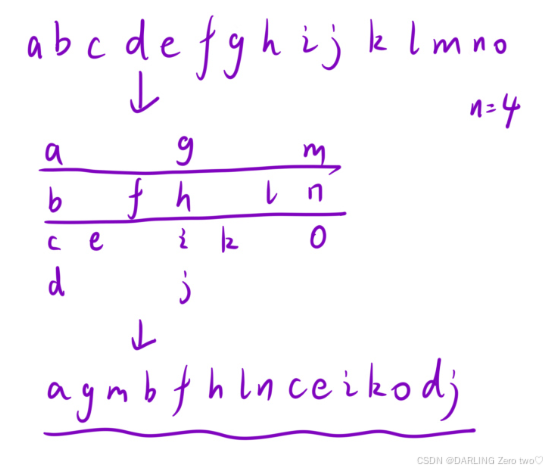 a b c d e f g h i j k l m n o
n=4
a g m
b f h l n
c e i k o
d j
a g m b f h l n c e i k o d j
CSDN @DARLING Zero two♡